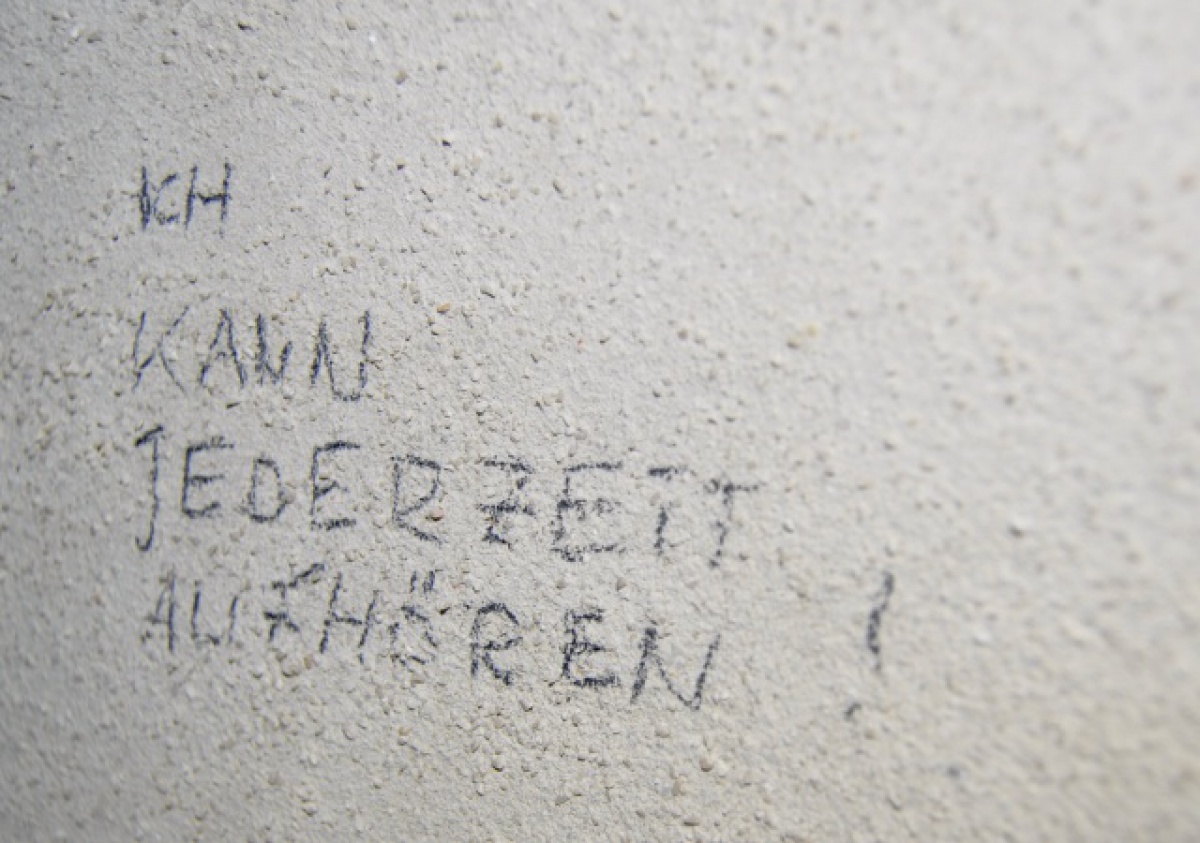 ICH
KANN
JEDERZEIT
AUFHÖREN !